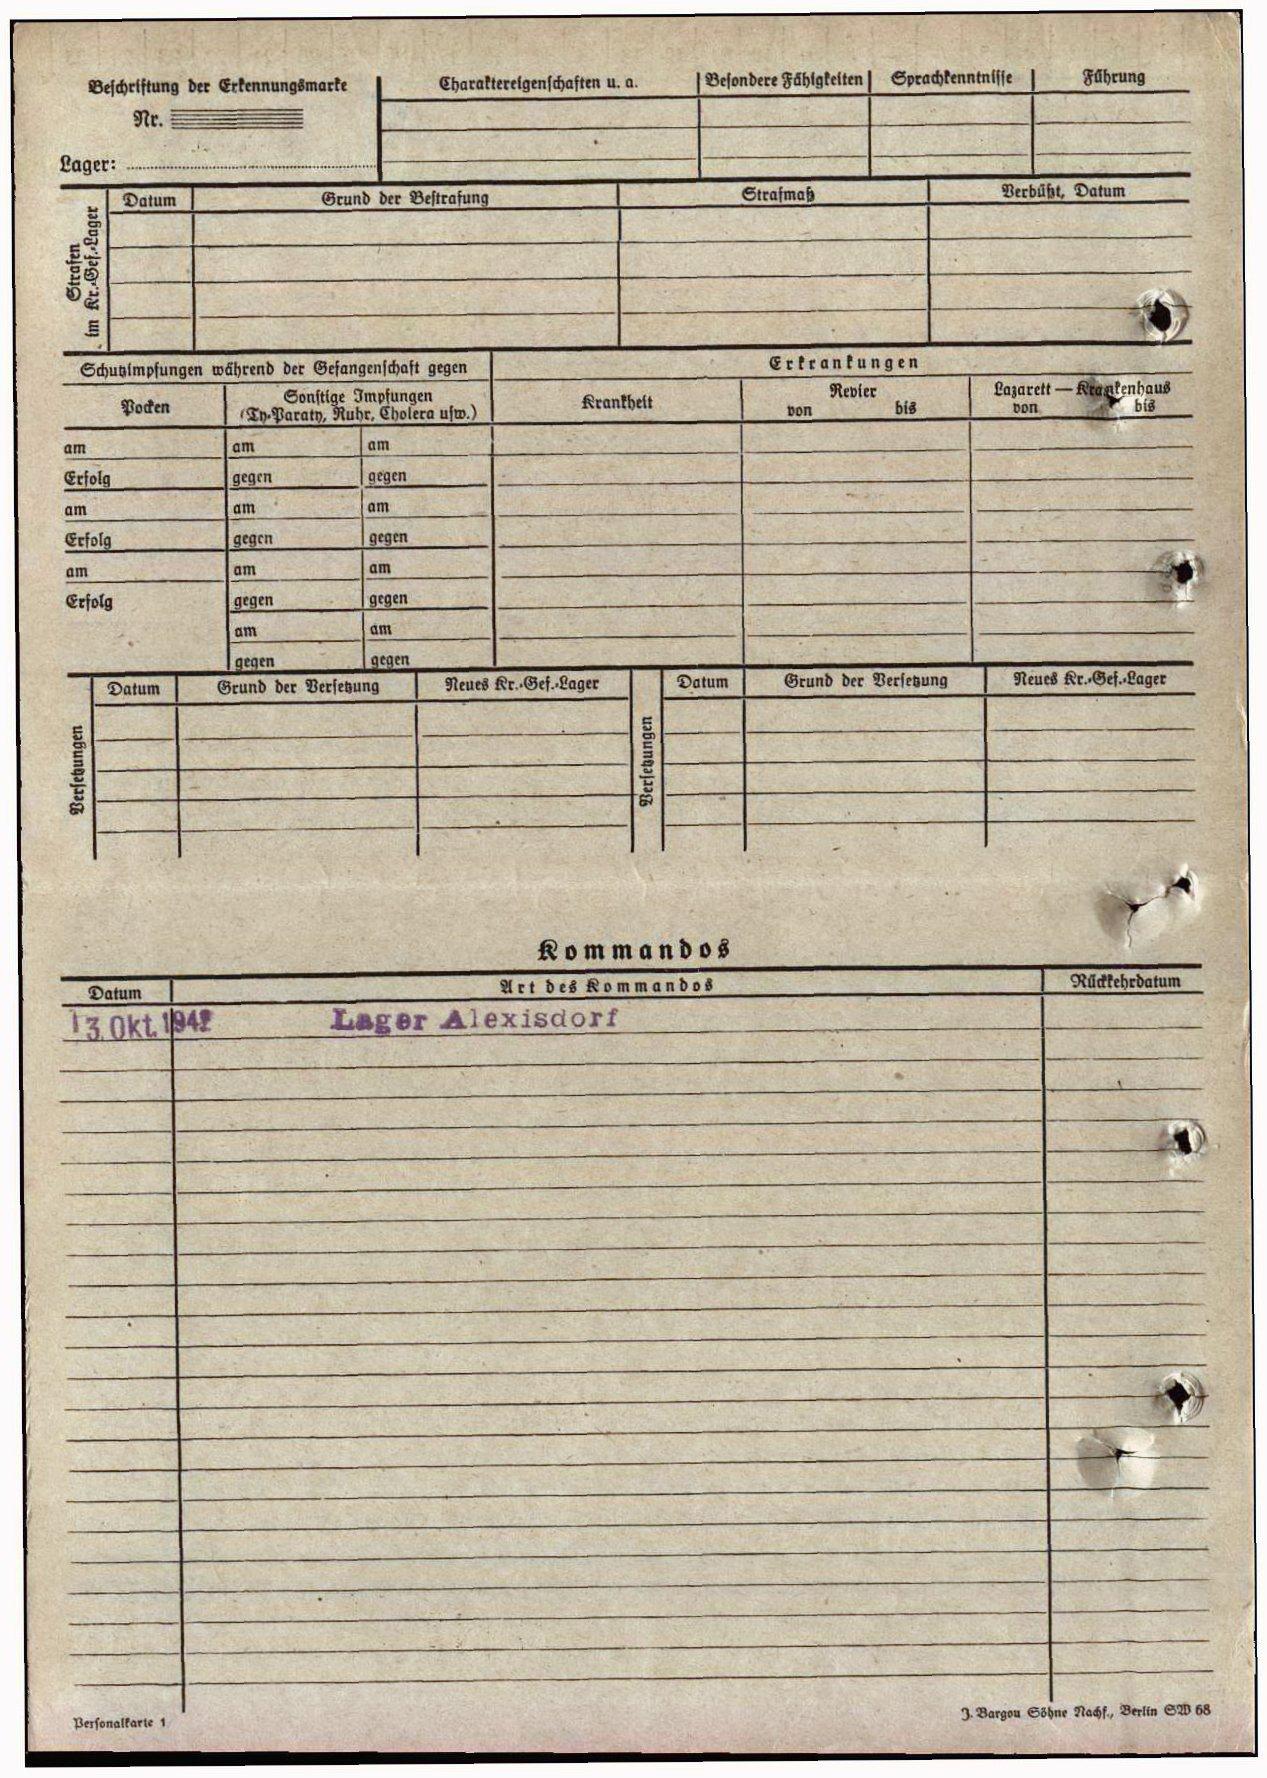 Beschriftung der Erkennungsmarke
Nr.
Lager:
Charaktereigenschaften u. a.
Besondere Fähigkeiten
Sprachkenntnisse
Führung
Strafen
im Kr.-Gef.-Lager
Datum
Grund der Bestrafung
Strafmaß
Verbüßt, Datum
Schutzimpfungen während der Gefangenschaft gegen
Erkrankungen
Pocken
Sonstige Impfungen
(Ty-Paraty, Ruhr, Cholera usw.)
Krankheit
Revier
von bis
Lazarett — Krankenhaus
von bis
am am am
Erfolg gegen gegen
am am am
Erfolg gegen gegen
am am am
Erfolg gegen gegen
am am
gegen gegen
Versetzungen
Datum
Grund der Versetzung
Neues Kr.-Gef.-Lager
Versetzungen
Datum
Grund der Versetzung
Neues Kr.-Gef.-Lager
Kommandos
Datum
Art des Kommandos
Rückkehrdatum
13. Okt. 1942 Lager Alexisdorf
Personalkarte 1
J. Bargou Söhne Nachf., Berlin SW 68